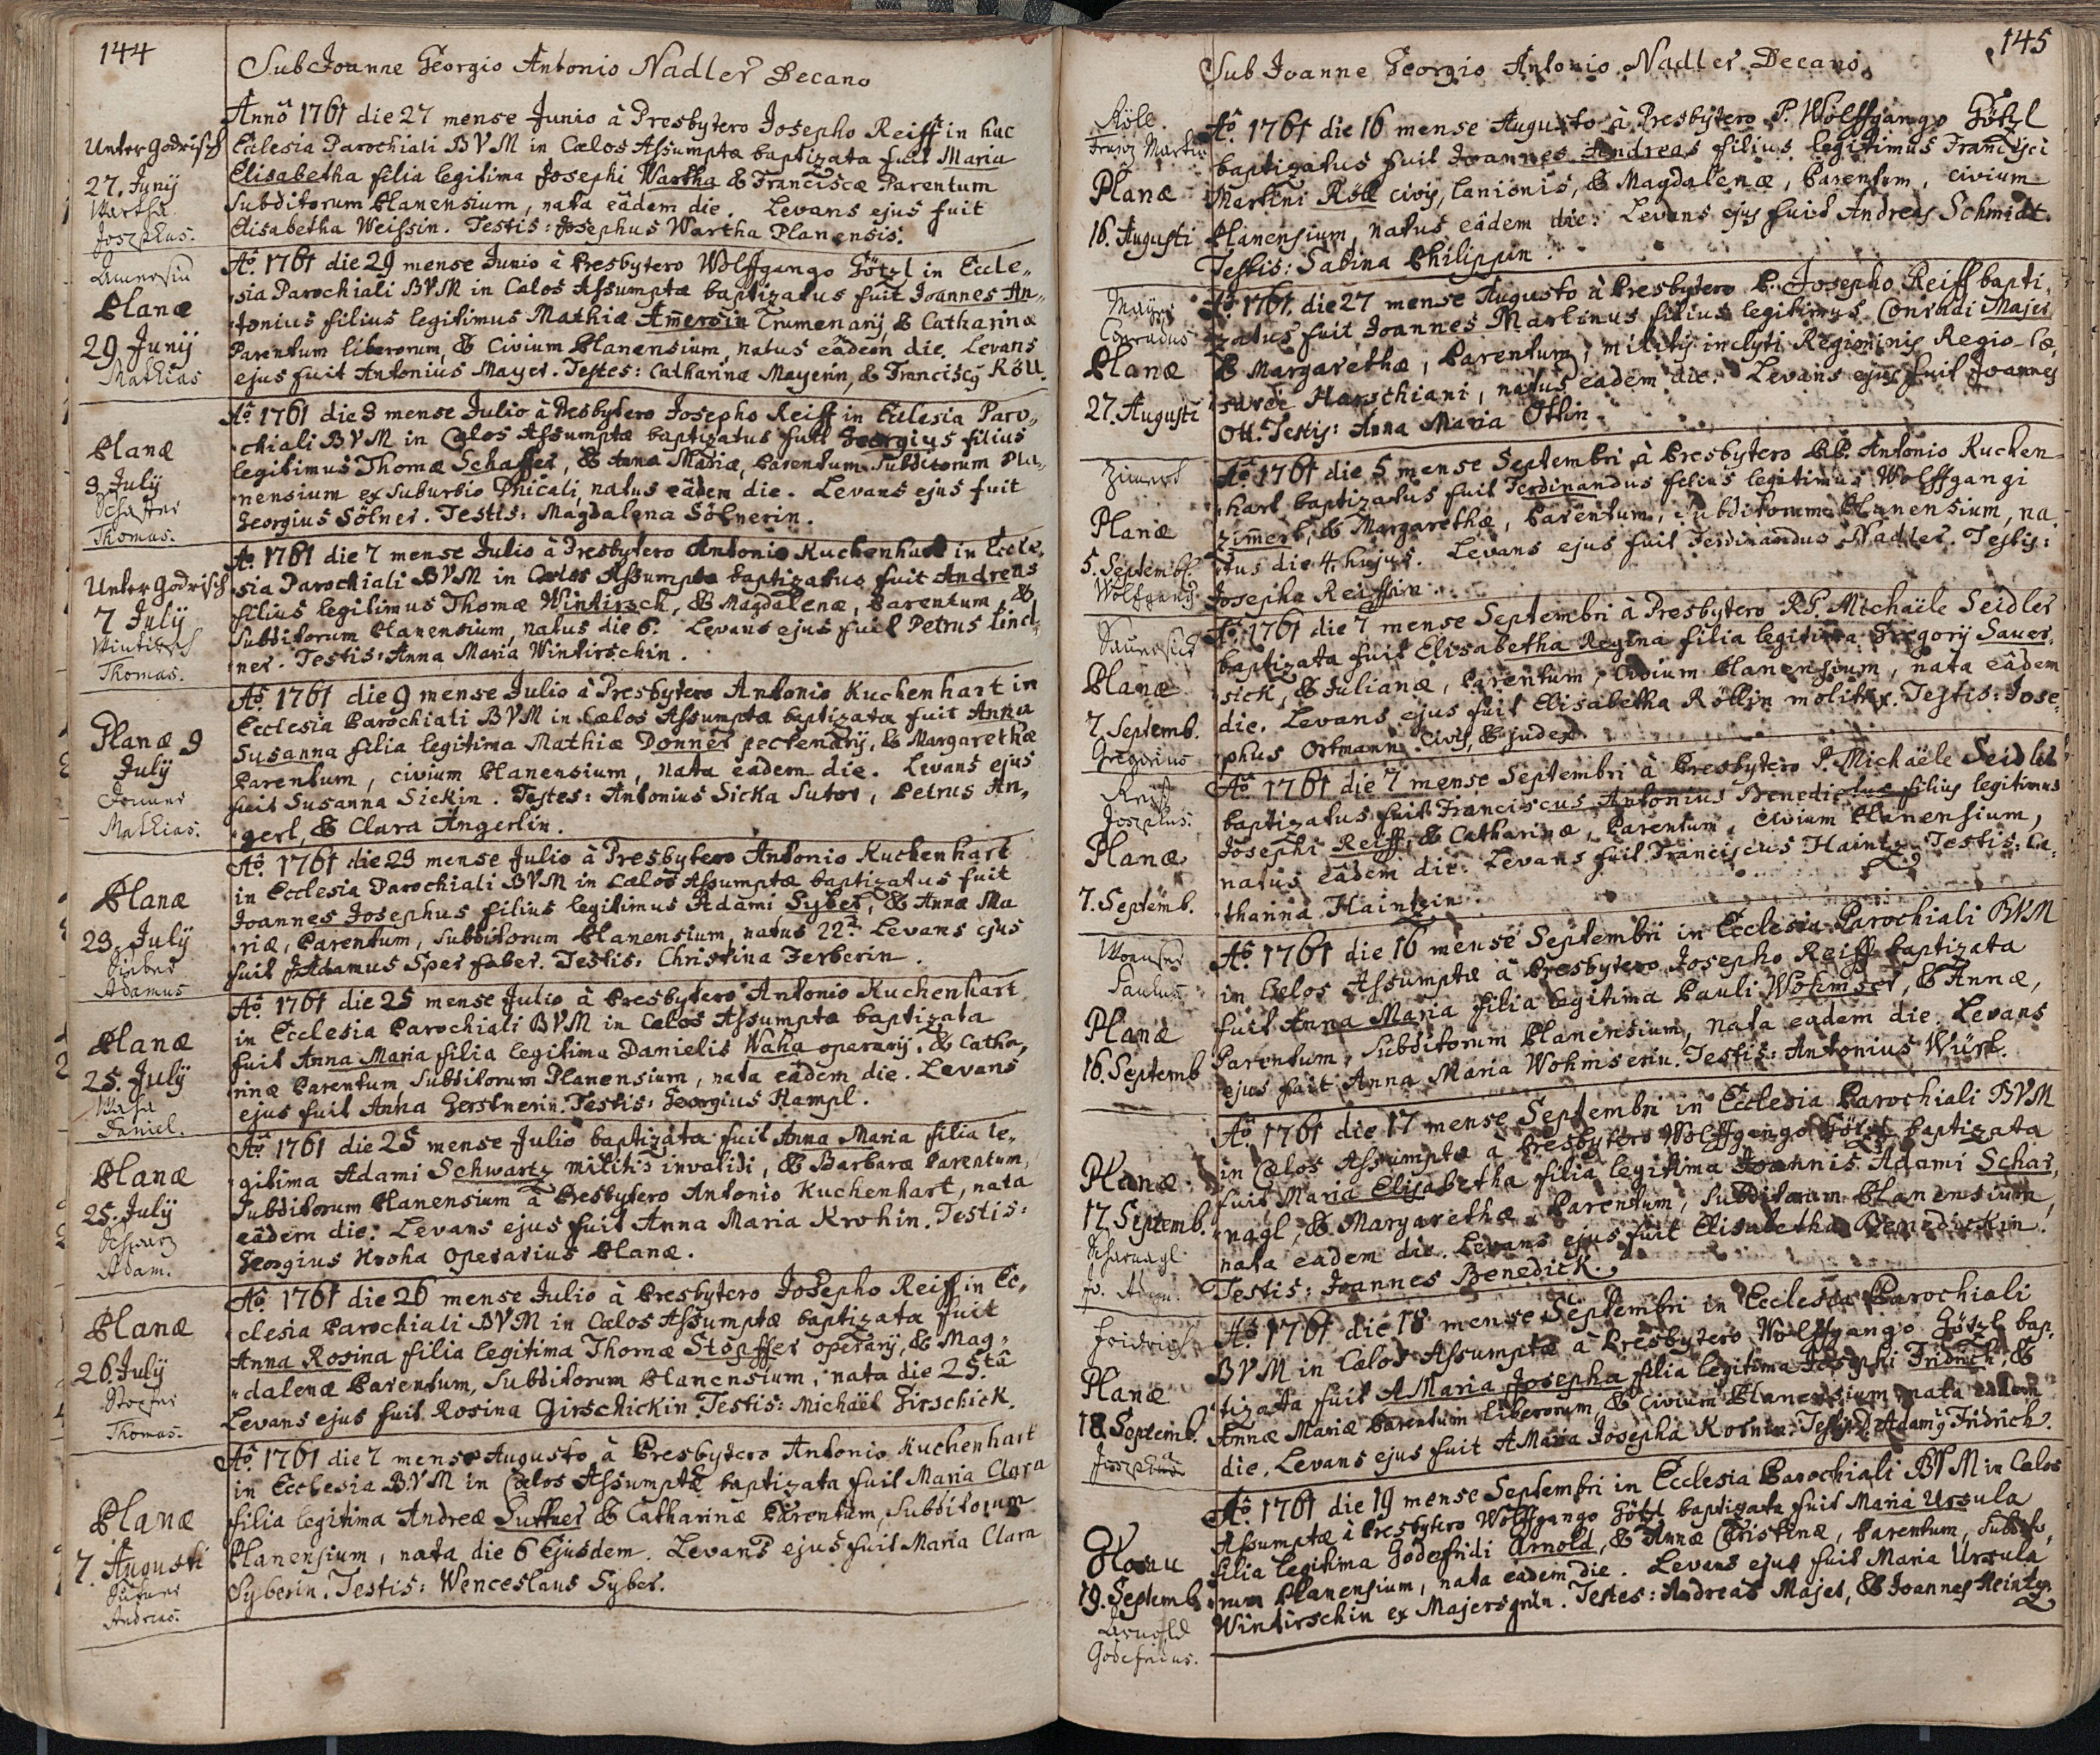 144
Sub Joanne Georgio Antonio Nadler Decano
Unter Godrisch
27. Junij
Wartha
Josephus.
Annô 1761 die 27 mense Junio à Presbytero Josepho Reiff in huc
Ecclesia Parochiali BVM in Cælos Assumptæ baptizata fuit Maria
Elisabetha filia legitima Josephi Wartha & Franciscæ Parentum
Subditorum Planensium, nata eâdem die. Levans ejus fuit
Elisabetha Weissin. Testis: Josephus Wartha Planensis.
Amersin
Planæ
29 Junij
Mathias
Aô. 1761 die 29 mense Junio à Presbytero Wolffgango Götzl in Eccle„
„sia Parochiali BVM in Cælos Assumptæ baptizatus fuit Joannes An„
„tonius filius legitimus Mathiæ Am̄ersin Trumenarij & Catharinæ
Parentum liberorum, & Civium Planensium, natus eâdem die. Levans
ejus fuit Antonius Mayer. Testes: Catharina Mayerin, & Franciscg Röll.
Planæ
3 July
Schaffer
Thomas.
Aô. 1761 die 3 mense Julio à Presbytero Josepho Reiff in Ecclesia Paro„
„chiali BVM in Cælos Assumptæ baptizatus fuit Georgius filius
legitimus Thomæ Schaffer, & Anna Mariæ, Parentum Subditorum Pla„
„nensium ex Suburbio Phicali, natus eâdem die. Levans ejus fuit
Georgius Sölner. Testis: Magdalena Sölnerin.
Unter Godrisch
7 July
Wintirsch
Thomas.
Aô. 1761 die 7 mense Julio à Presbytero Antonio Kuchenhart in Eccle„
„sia Parochiali BVM in Cælos Assumptæ baptizatus fuit Andreas
filius legitimus Thomæ Wintirsch, & Magdalenæ, Parentum, &
Subditorum Planensium, natus die 6. Levans ejus fuit Petrus Lind„
„ner. Testis: Anna Maria Wintirschin.
Planæ 9
July
Donner
Mathias.
Aô. 1761 die 9 mense Julio à Presbytero Antonio Kuchenhart in
Ecclesia Parochiali BVM in Cælos Assumptæ baptizata fuit Anna
Susanna filia legitima Mathiæ Donner pectenarij, & Margarethæ
Parentum, civium Planensium, nata eâdem die. Levans ejus
fuit Susanna Sickin. Testes: Antonius Sicka Sutor, Petrus An„
„gerl, & Clara Angerlin.
Planæ
23. July
Sieber
Adamus
Aô. 1761 die 23 mense Julio à Presbytero Antonio Kuchenhart
in Ecclesia Parochiali BVM in Cælos Assumptæ baptizatus fuit
Joannes Josephus filius legitimus Adami Syber, & Annæ Ma
„riæ, Parentum, Subditorum Planensium, natus 22. Levans ejus
fuit Adamus Sper faber. Testis: Christina Ferberin.
Planæ
25. July
Waha
Daniel.
Aô. 1761 die 25 mense Julio à Presbytero Antonio Kuchenhart
in Ecclesia Parochiali BVM in Cælos Assumptæ baptizata
fuit Anna Maria filia legitima Danielis Waha operarij, & Catha„
„rinæ Parentum Subditorum Planensium, nata eâdem die. Levans
ejus fuit Anna Gerstnerin. Testis: Georgius Hampl.
Planæ
25. July
Schwarz
Adam.
Aô. 1761 die 25 mense Julio baptizata fuit Anna Maria filia le„
„gitima Adami Schwartz militis invalidi, & Barbaræ Parentum,
Subditorum Planensium à Presbytero Antonio Kuchenhart, nata
eâdem die: Levans ejus fuit Anna Maria Krohin. Testis:
Georgius Kroha Operarius Planæ.
Planæ
26. July
Stoefer
Thomas.
Aô. 1761 die 26 mense Julio à Presbytero Josepho Reiff in Ec„
„clesia Parochiali BVM in Cælos Assumptæ baptizata fuit
Anna Rosina filia legitima Thomæ Stöpffer operarij, & Mag„
„dalenæ Parentum, Subditorum Planensium, nata die 25tâ
Levans ejus fuit Rosina Girschickin. Testis: Michaël Girschick.
Planæ
7. Augusti
Suttner
Andreas.
Aô. 1761 die 7 mense Augusto à Presbytero Antonio Kuchenhart
in Ecclesia B.V.M in Cælos Assumptæ baptizata fuit Maria Clara
filia legitima Andreæ Suttner & Catharinæ Parentum, Subditorum
Planensium, nata die 6 Ejusdem. Levans ejus fuit Maria Clara
Syberin. Testis: Wenceslaus Syber.
145
Sub Joanne Georgio Antonio Nadler Decano
Röll
Franz Martin
Planæ
16. Augusti
Aô. 1761 die 16 mense Augusto à Presbytero P. Wolffgango Götzl
baptizatus fuit Joannes Andreas filius legitimus Francisci
Martini Röll civis, lanionis, & Magdalenæ, Parentum, civium
Planensium, natus eâdem die: Levans ejus fuit Andreas Schmidt.
Testis: Sabina Philippin.
Mayer
Conradus
Planæ
27. Augusti
Aô. 1761. die 27 mense Augusto à Presbytero P. Josepho Reiff bapti„
„zatus fuit Joannes Martinus filius legitimus Conradi Majer
& Margarethæ, Parentum, militis inclyti Regiminis Regio-Cæ„
„sarei Harschiani, natus eadem die: Levans ejus fuit Joannes
Ott. Testis: Anna Maria Ottin.
Zimert
Planæ
5. Septemb.
Wolfgang
Aô. 1761 die 5 mense Septembri à Presbytero RP. Antonio Kuchen„
„hart baptizatus fuit Ferdinandus filius legitimus Wolffgangi
Zim̄ert, & Margarethæ, Parentum, Subditorum Planensium, na„
„tus die 4. hujus. Levans ejus fuit Ferdinandus Nadler. Testis:
Josepha Reiffin.
Planæ
7. Septemb.
Gregorius
Aô. 1761 die 7 mense Septembri à Presbytero RP. Michaële Seidler
baptizata fuit Elisabetha Regina filia legitima Gregorij Sauer„
„sick, & Julianæ, Parentum, Civium Planensium, nata eâdem
die. Levans ejus fuit Elisabetha Röllin molitrix. Testis: Jose„
„phus Ortmann Civis, & Judex.
Reiff
Josephus.
Planæ
7. Septemb.
Aô. 1761 die 7 mense Septembri à Presbytero P. Michaële Seidler
baptizatus fuit Franciscus Antonius Benedictus filius legitimus
Josephi Reiff, & Catharinæ, Parentum, Civium Planensium,
natus eâdem die: Levans fuit Franciscus Haintz. Testis: Ca„
„tharina Haintzin.
Womser
Paulus
Planæ
16. Septemb
Aô. 1761 die 16 mense Septembri in Ecclesia Parochiali BVM
in Cælos Assumptæ à Presbytero Josepho Reiff baptizata
fuit Anna Maria filia legitima Pauli Wohmser, & Annæ,
Parentum, Subditorum Planensium, nata eadem die. Levans
ejus fuit Anna Maria Wohmserin. Testis: Antonius Würt.
Planæ
17. Septemb.
Scharnagl
Jo. Adam.
Aô. 1761 die 17 mense Septembri in Ecclesia Parochiali BVM
in Cælos Assumptæ à Presbytero Wolffgango Götzl baptizata
fuit Maria Elisabetha filia legitima Joannis Adami Schar„
„nagl, & Margarethæ Parentum, Subditorum Planensium,
nata eadem die. Levans ejus fuit Elisabetha Benedickin.
Testis: Joannes Benedick.
Fridrich
Planæ
18. Septemb.
Josephus
Aô. 1761 die 18 mense Septembri in Ecclesia Parochiali
BVM in Cælos Assumptæ à Presbytero Wolffgango Götzl bap„
tizata fuit A Maria Josepha filia legitima Josephi Fridrich, &
Annæ Mariæ Parentum liberorum, & Civium Planensium, nata eadem
die. Levans ejus fuit A Maria Josepha Kornin. Testis: Adamg Fridrich.
19. Septemb.
Arnold
Godefridus.
Aô. 1761 die 19 mense Septembri in Ecclesia Parochiali BVM in Cælos
Assumptæ à Presbytero Wolffgango Götzl baptizata fuit Maria Ursula
filia legitima Godefridi Arnold, & Annæ Christinæ, Parentum, Subdito„
„rum Planensium, nata eadem die. Levans ejus fuit Maria Ursula
Wintirschin ex Majersgrün. Testes: Andreas Majer, & Joannes Heintz.